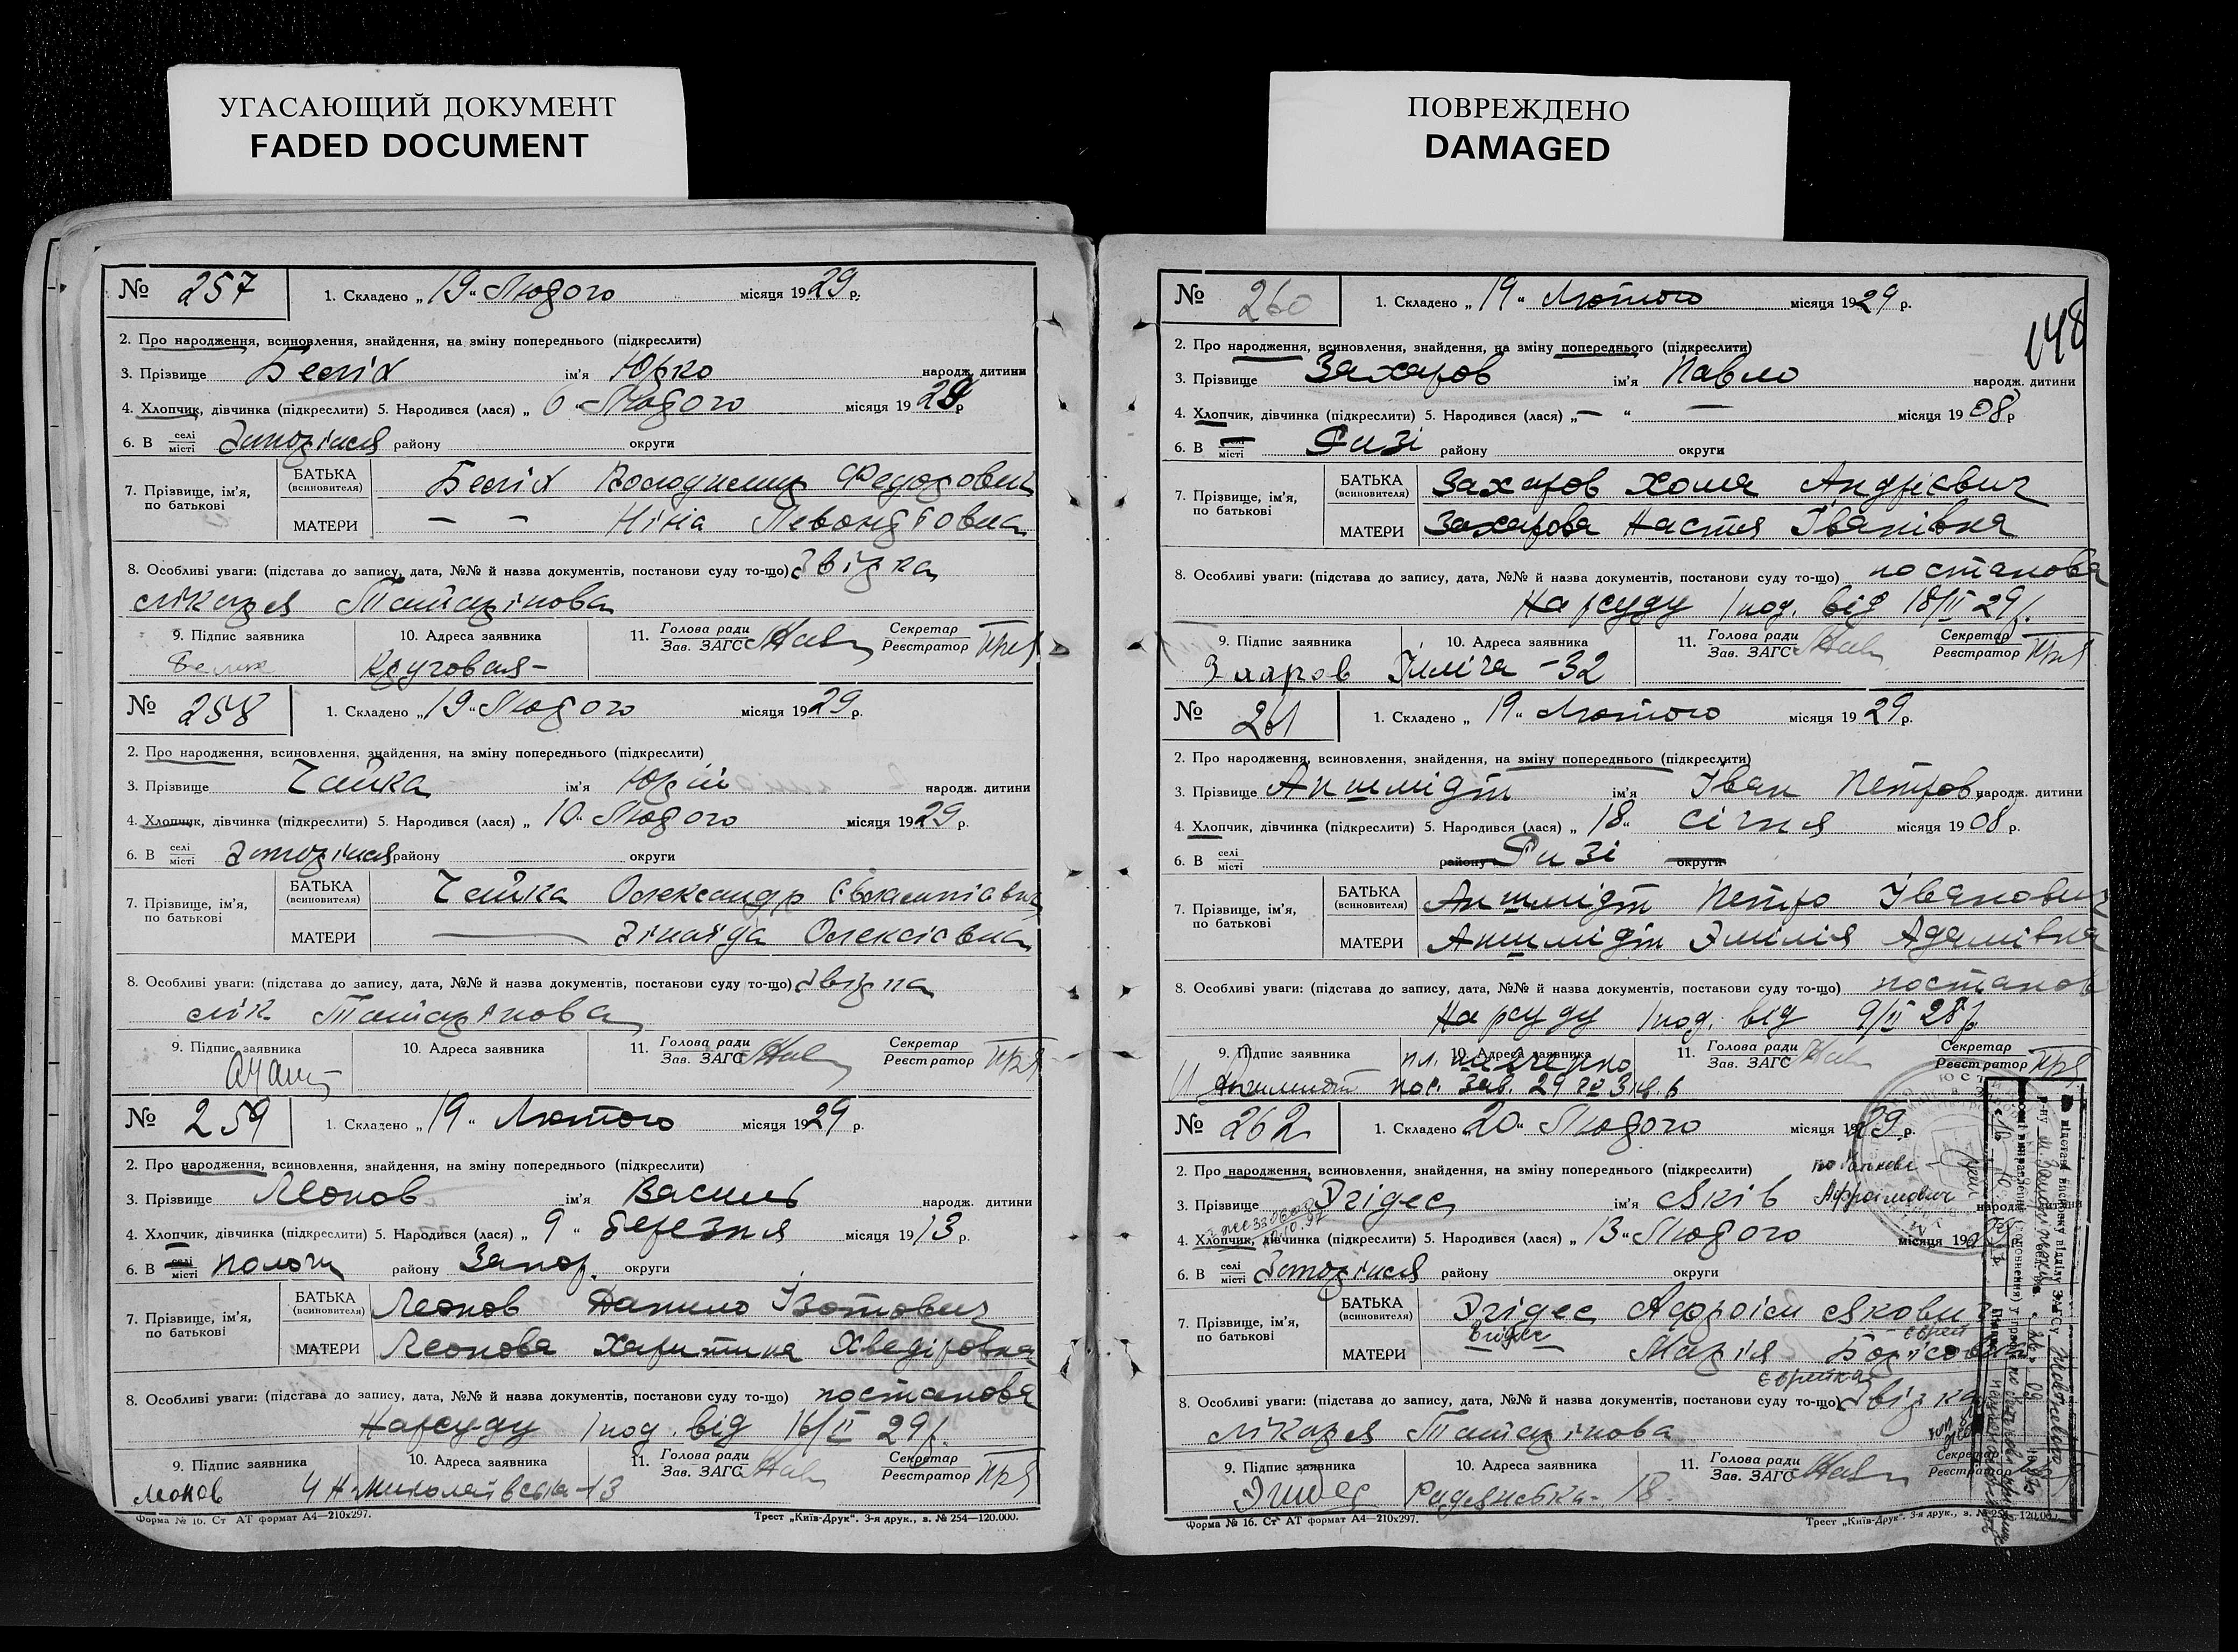 УГАСАЮЩИЙ ДОКУМЕНТ
FADED DOCUMENT
№ 257 1. Складено „ 19 “ Лютого місяця 1929 р.
2. Про народження, всиновлення, знайдення, на зміну попереднього (підкреслити)
3. Прізвище ім'я Юрко народж. дитини
4. Хлопчик, дівчинка (підкреслити) 5. Народився (лася) „ 6 “ Лютого місяця 1929 р
6. В селі місті Запоріжжя району округи
7. Прізвище, ім'я, по батькові
БАТЬКА (всиновителя) Володимир Федорович
МАТЕРИ — — Ніна
8. Особливі уваги: (підстава до запису, дата, №№ й назва документів, постанови суду то-що) Звідка
лікаря Татарінова
9. Підпис заявника 10. Адреса заявника 11. Голова ради Зав. ЗАГС Секретар Реєстратор
Кругова
№ 258 1. Складено „ 19 “ Лютого місяця 1929 р.
2. Про народження, всиновлення, знайдення, на зміну попереднього (підкреслити)
3. Прізвище Чайка ім'я Юрій народж. дитини
4. Хлопчик, дівчинка (підкреслити) 5. Народився (лася) „ 10 “ Лютого місяця 1929 р.
6. В селі місті Запоріжжя району округи
7. Прізвище, ім'я, по батькові
БАТЬКА (всиновителя) Чайка Олександр
МАТЕРИ — Зінаїда Олексієвна
8. Особливі уваги: (підстава до запису, дата, №№ й назва документів, постанови суду то-що) Звідка
лік. Татарінова
9. Підпис заявника 10. Адреса заявника 11. Голова ради Зав. ЗАГС Секретар Реєстратор
№ 259 1. Складено „ 19 “ Лютого місяця 1929 р.
2. Про народження, всиновлення, знайдення, на зміну попереднього (підкреслити)
3. Прізвище Леонов ім'я Василь народж. дитини
4. Хлопчик, дівчинка (підкреслити) 5. Народився (лася) „ 9 “ березня місяця 1913 р.
6. В селі місті Пологи району Запор. округи
7. Прізвище, ім'я, по батькові
БАТЬКА (всиновителя) Леонов Данило Ізотович
МАТЕРИ Леонова Харитина Хведіровна
8. Особливі уваги: (підстава до запису, дата, №№ й назва документів, постанови суду то-що) постанова
Нарсуду 1 под. від 16/II 29 р.
9. Підпис заявника 10. Адреса заявника 11. Голова ради Зав. ЗАГС Секретар Реєстратор
Леонов 13
Форма № 16. Ст АТ формат А4—210х297. Трест „Київ-Друк“. 3-я друк., з. № 254—120.000.
ПОВРЕЖДЕНО
DAMAGED
148
№ 260 1. Складено „ 19 “ Лютого місяця 1929 р.
2. Про народження, всиновлення, знайдення, на зміну попереднього (підкреслити)
3. Прізвище Захаров ім'я Павло народж. дитини
4. Хлопчик, дівчинка (підкреслити) 5. Народився (лася) „ — “ — місяця 1908 р
6. В селі місті Ризі району округи
7. Прізвище, ім'я, по батькові
БАТЬКА (всиновителя) Захаров Хома Андрієвич
МАТЕРИ Захарова Настя Іванівна
8. Особливі уваги: (підстава до запису, дата, №№ й назва документів, постанови суду то-що) постанова
Нарсуду 1 под. від 18/II 29 р.
9. Підпис заявника 10. Адреса заявника 11. Голова ради Зав. ЗАГС Секретар Реєстратор
Ілліча - 32
№ 261 1. Складено „ 19 “ Лютого місяця 1929 р.
2. Про народження, всиновлення, знайдення, на зміну попереднього (підкреслити)
3. Прізвище Аншмідт ім'я Іван Петров. народж. дитини
4. Хлопчик, дівчинка (підкреслити) 5. Народився (лася) „ 18 “ січня місяця 1908 р.
6. В селі місті району Ризі округи
7. Прізвище, ім'я, по батькові
БАТЬКА (всиновителя) Аншмідт Петро Іванович
МАТЕРИ Аншмідт Эмілія Адамівна
8. Особливі уваги: (підстава до запису, дата, №№ й назва документів, постанови суду то-що) постанов
Нарсуду 1 под. від 9/II 28 р.
9. Підпис заявника 10. Адреса заявника 11. Голова ради Зав. ЗАГС Секретар Реєстратор
№ 262 1. Складено „ 20 “ Лютого місяця 1929 р.
2. Про народження, всиновлення, знайдення, на зміну попереднього (підкреслити) по батькові
3. Прізвище Эгідес ім'я Яків Афроімович народж. дитини
4. Хлопчик, дівчинка (підкреслити) 5. Народився (лася) „ 13 “ Лютого місяця 19
6. В селі місті Запоріжжя району округи
7. Прізвище, ім'я, по батькові
БАТЬКА (всиновителя) Эгідес Афроім Якович
єврей
МАТЕРИ Эгідес Марія Борісовна
єврейка
8. Особливі уваги: (підстава до запису, дата, №№ й назва документів, постанови суду то-що) Звідка
лікаря Татарінова
9. Підпис заявника 10. Адреса заявника 11. Голова ради Зав. ЗАГС Секретар Реєстратор
Эгидес Радянська - 18.
Форма № 16. Ст АТ формат А4—210х297. Трест „Київ-Друк“. 3-я друк., з. № 254—120.000.